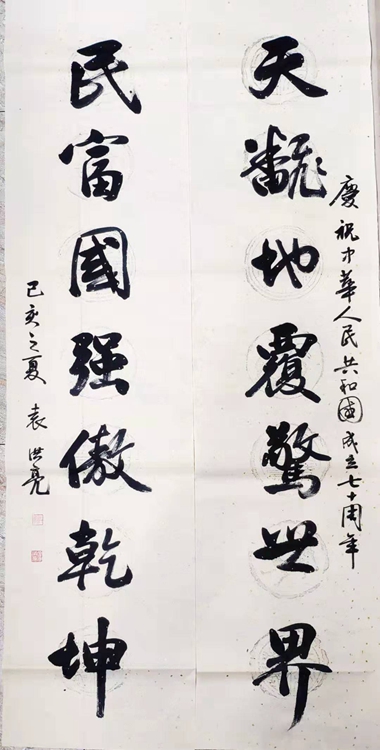 慶祝中華人民共和國成立七十周年
天翻地覆驚世界
民富國强傲乾坤
己亥之夏 袁洪亮